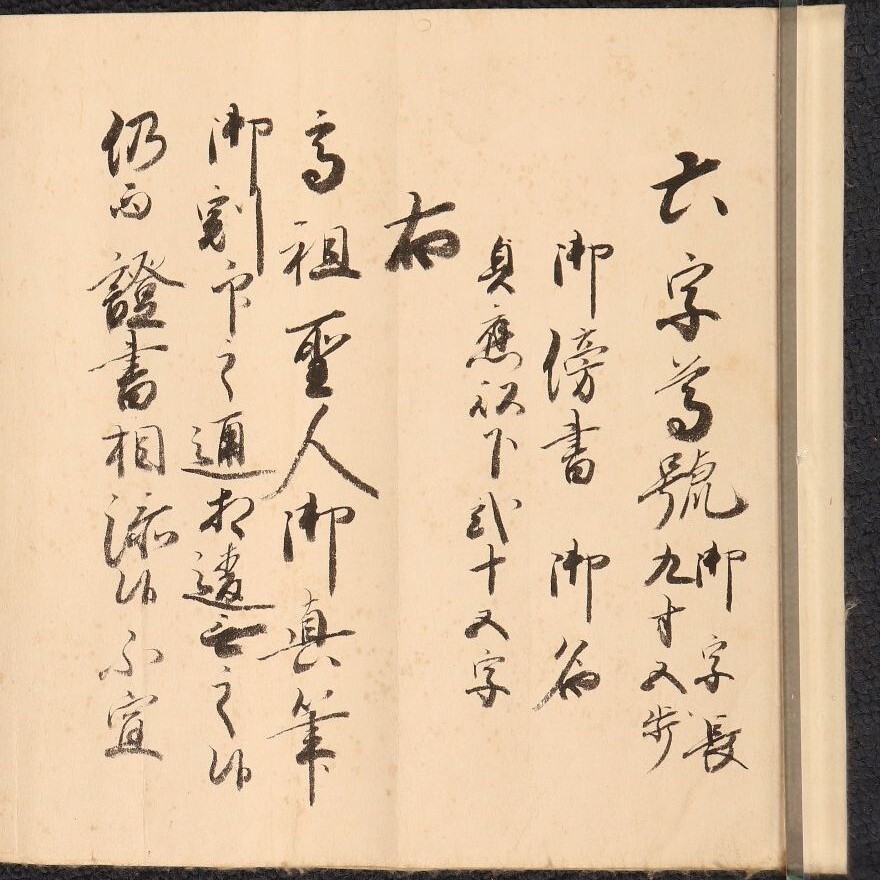 六字尊號 御字長九寸五歩
御傍書 御名
貞應以下貳十五字
右
高祖聖人御真筆
御割印之通相違無之候
仍而證書相添候不宜